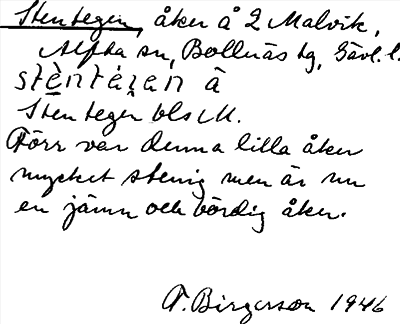 Stentegen, åker å 2 Malvik,
Alfta sn, Bollnäs tg, Gävl. l.
Stentegen bls M.
Förr var denna lilla åker
mycket stenig men är nu
en jämn och bördig åker.
A. Birgerson 1946